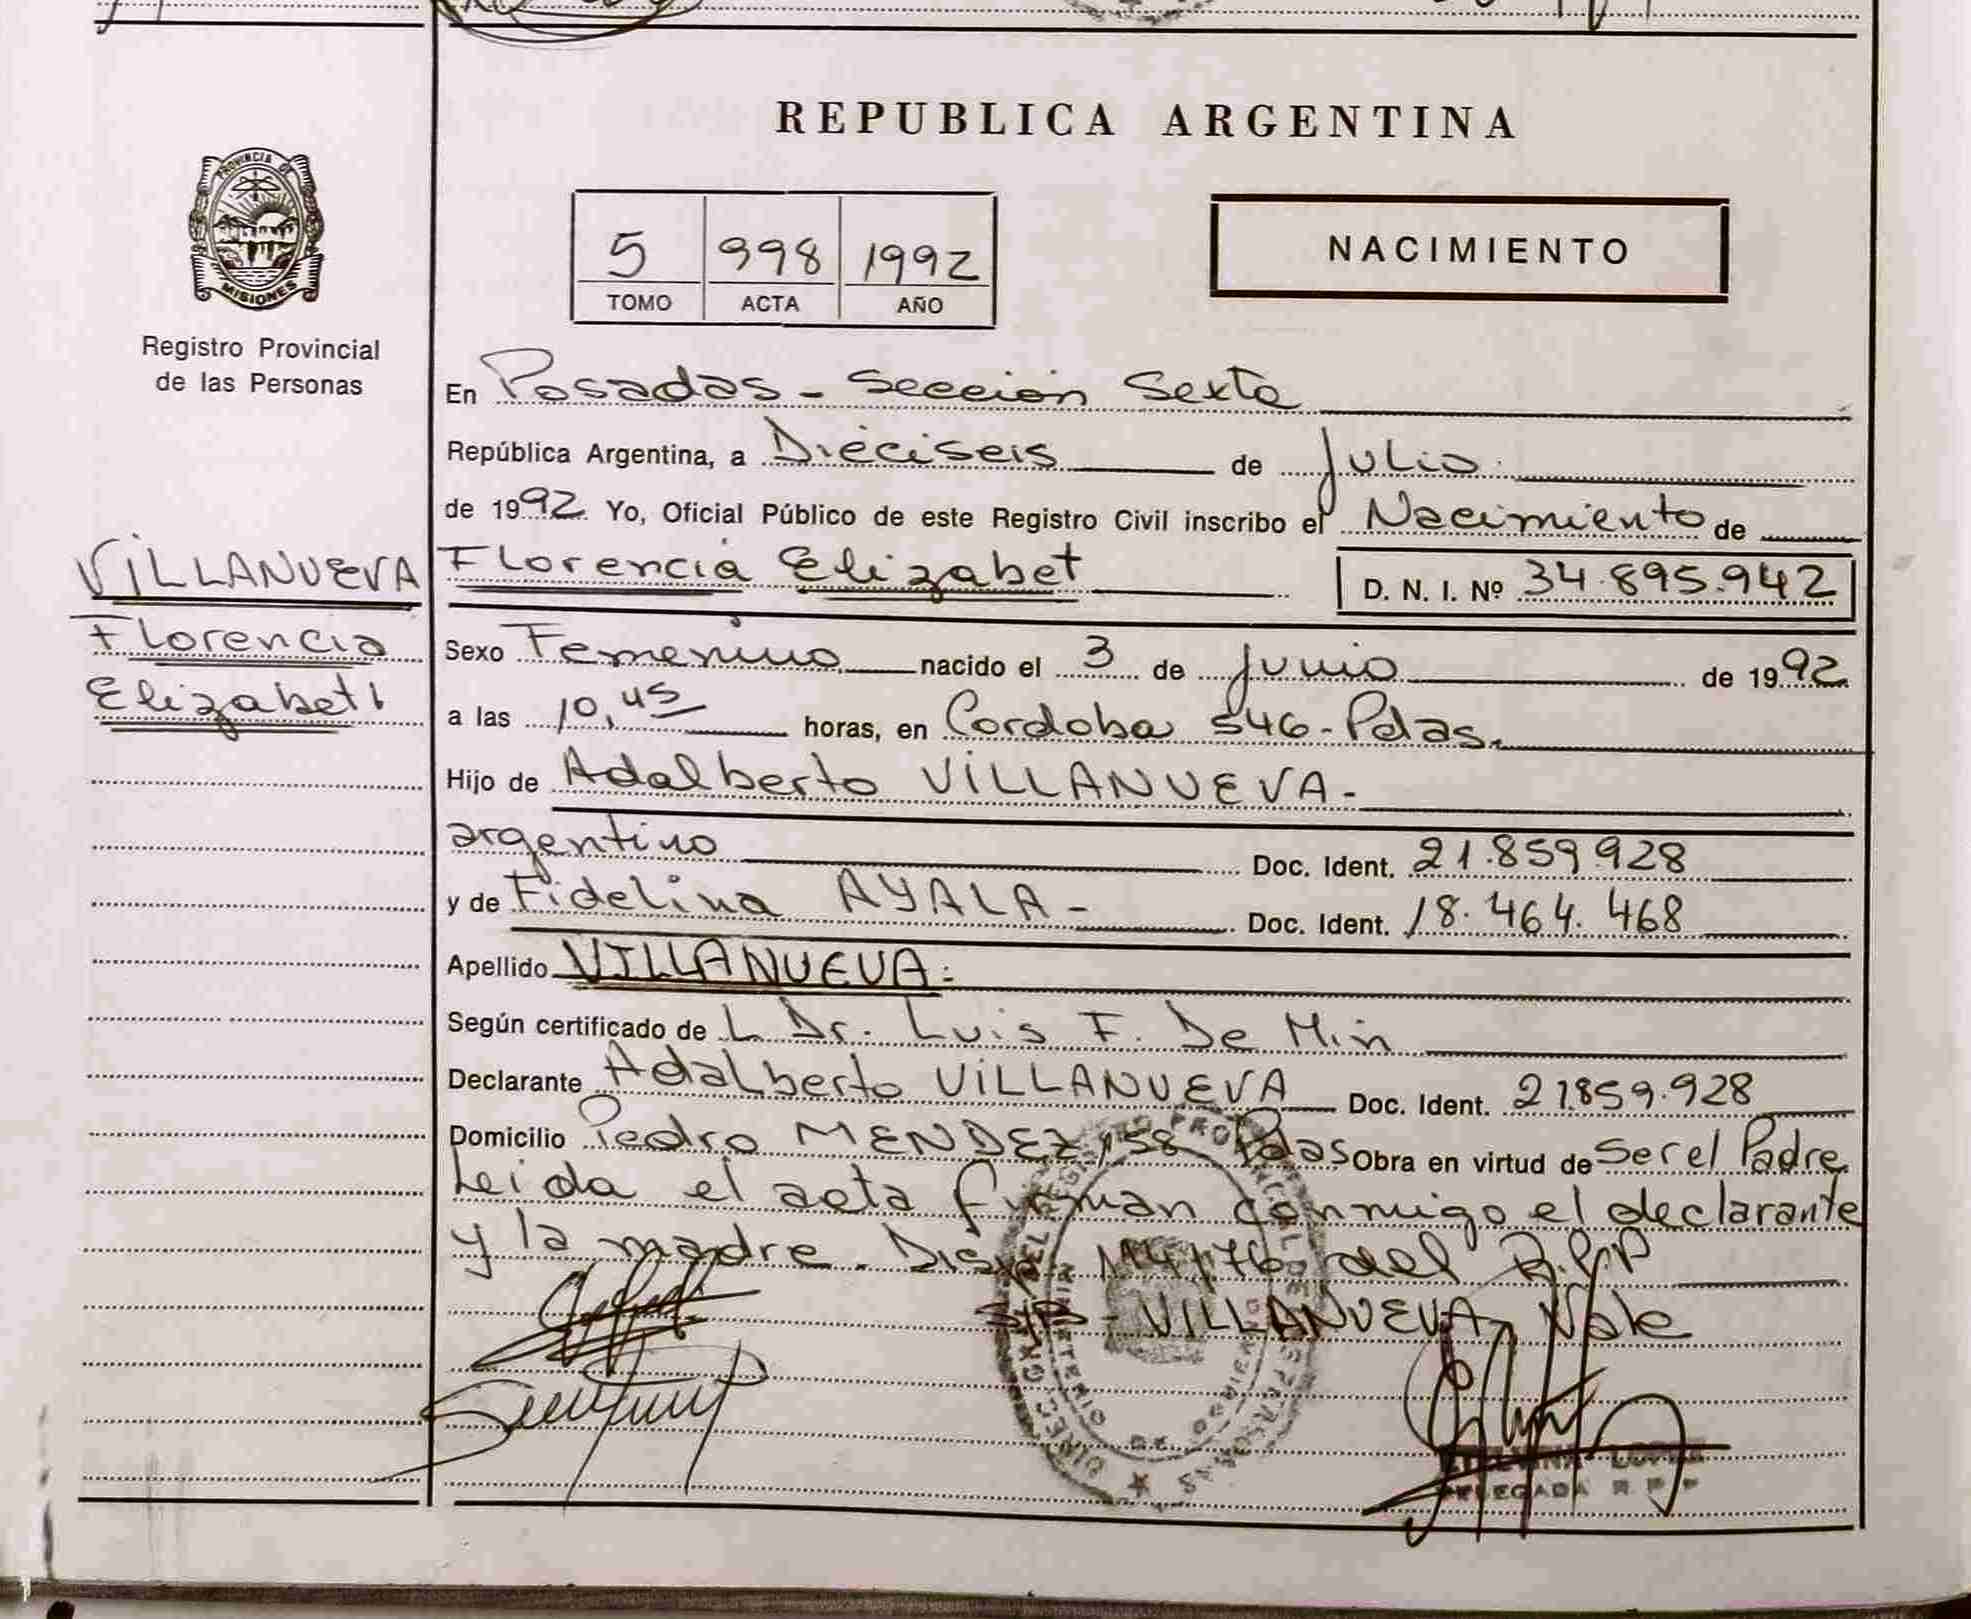 REPUBLICA ARGENTINA
PROVINCIA DE
MISIONES
Registro Provincial
de las Personas
5 998 1992
TOMO ACTA AÑO
NACIMIENTO
En Posadas - Sección Sexta
República Argentina, a Dieciseis de Julio
de 1992 Yo, Oficial Público de este Registro Civil inscribo el Nacimiento de
VILLANUEVA
Florencia
Elizabet
Florencia Elizabet
D. N. I. Nº 34.895.942
Sexo Femenino nacido el 3 de Junio de 1992
a las 10,45 horas, en Cordoba 546 - Pdas.
Hijo de Adalberto VILLANUEVA -
argentino Doc. Ident. 21.859.928
y de Fidelina AYALA - Doc. Ident. 18.464.468
Apellido VILLANUEVA
Según certificado de L Dr. Luis F. De Min
Declarante Adalberto VILLANUEVA Doc. Ident. 21.859.928
Domicilio Pedro MENDEZ 158 Pdas Obra en virtud de Ser el Padre
Leida el acta firman conmigo el declarante
y la madre. Disp. 114/76 del R.P.P
S/R - VILLANUEVA, Vale
DELEGADA R. P. P